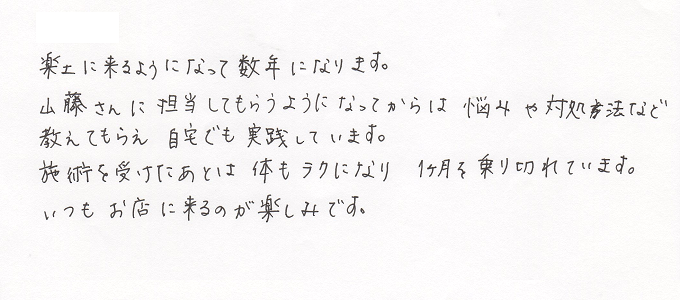 楽土に来るようになって数年になります。
山藤さんに担当してもらうようになってからは 悩みや対処方法など
教えてもらえ 自宅でも実践しています。
施術を受けたあとは 体もラクになり 1ヶ月を乗り切れています。
いつもお店に来るのが楽しみです。